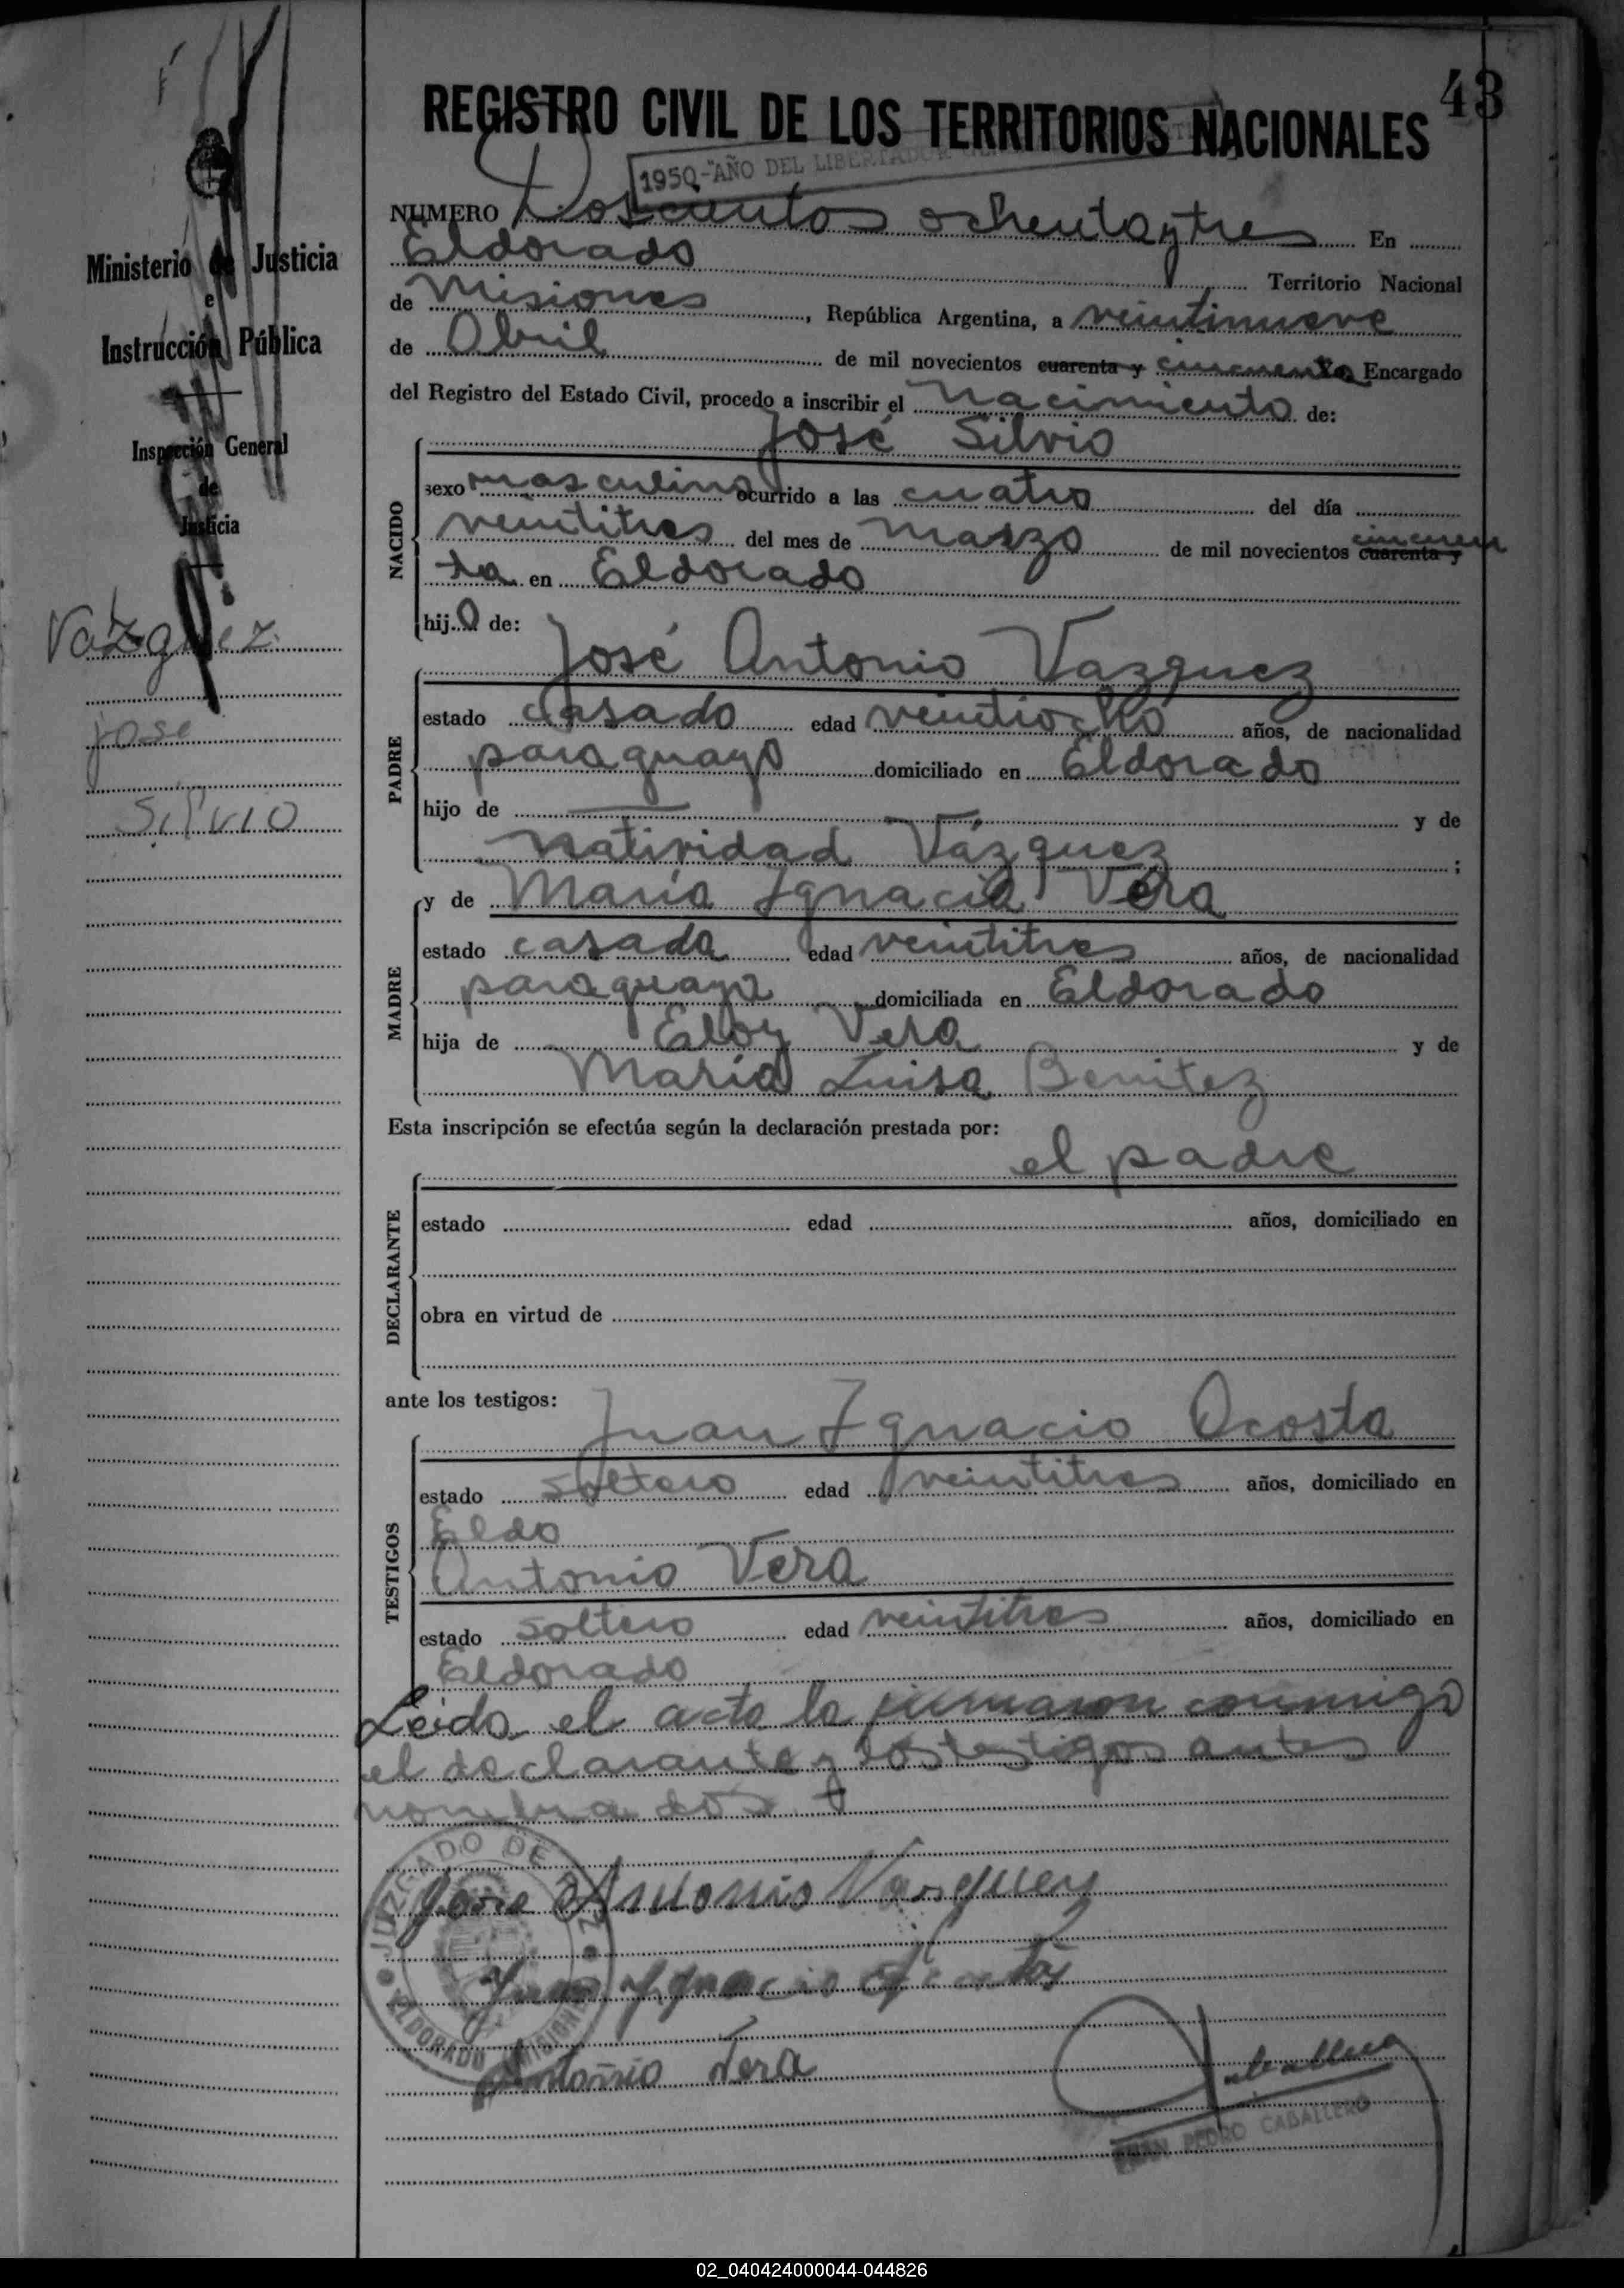 43
REGISTRO CIVIL DE LOS TERRITORIOS NACIONALES
1950-"AÑO DEL LIBERTADOR
NUMERO Doscientos ochentaytres En
Eldorado Territorio Nacional
de Misiones, República Argentina, a veintinueve
de Abril de mil novecientos cuarenta y cincuenta Encargado
del Registro del Estado Civil, procedo a inscribir el nacimiento de:
José Silvio
NACIDO
sexo masculino ocurrido a las cuatro del día
veintitres del mes de marzo de mil novecientos cuarenta y cincuen
ta en Eldorado
hijo de:
José Antonio Vazquez
PADRE
estado casado edad veintiocho años, de nacionalidad
paraguayo domiciliado en Eldorado
hijo de y de
Natividad Vázquez ;
y de María Ignacia Vera
MADRE
estado casada edad veintitres años, de nacionalidad
paraguaya domiciliada en Eldorado
hija de Eloy Vera y de
María Luisa Benitez
Esta inscripción se efectúa según la declaración prestada por:
el padre
DECLARANTE
estado edad años, domiciliado en
obra en virtud de
ante los testigos:
Juan Ignacio Acosta
TESTIGOS
estado soltero edad veintitres años, domiciliado en
Eldo
Antonio Vera
estado soltero edad veintitres años, domiciliado en
Eldorado
Leida el acta la firmaron conmigo
el declarante y los testigos antes
nombrados
Jose Antonio Vasquez
Juan Ignacio Acosta
Antonio Vera
Caballero
JUAN PEDRO CABALLERO
JUZGADO DE PAZ
ELDORADO MISIONES
Ministerio de Justicia
e
Instrucción Pública
Inspección General
de
Justicia
Vazquez
jose
Silvio
02_040424000044-044826